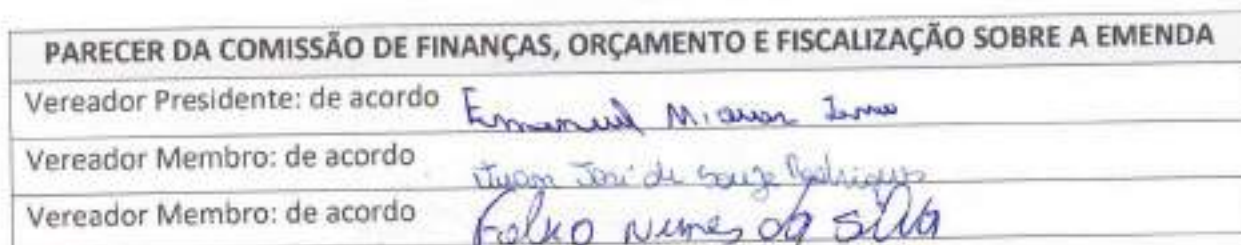 PARECER DA COMISSÃO DE FINANÇAS, ORÇAMENTO E FISCALIZAÇÃO SOBRE A EMENDA
Vereador Presidente: de acordo Emanuel
Vereador Membro: de acordo José de Souza Rodrigues
Vereador Membro: de acordo Nunes da Silva